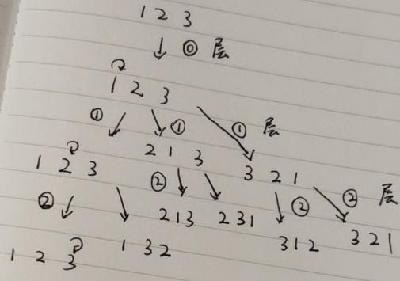 1 2 3
⓪ 层
1 2 3
① ① ① 层
1 2 3 2 1 3 3 2 1
② ② ② ② 层
213 231 312 321
1 2 3 1 3 2